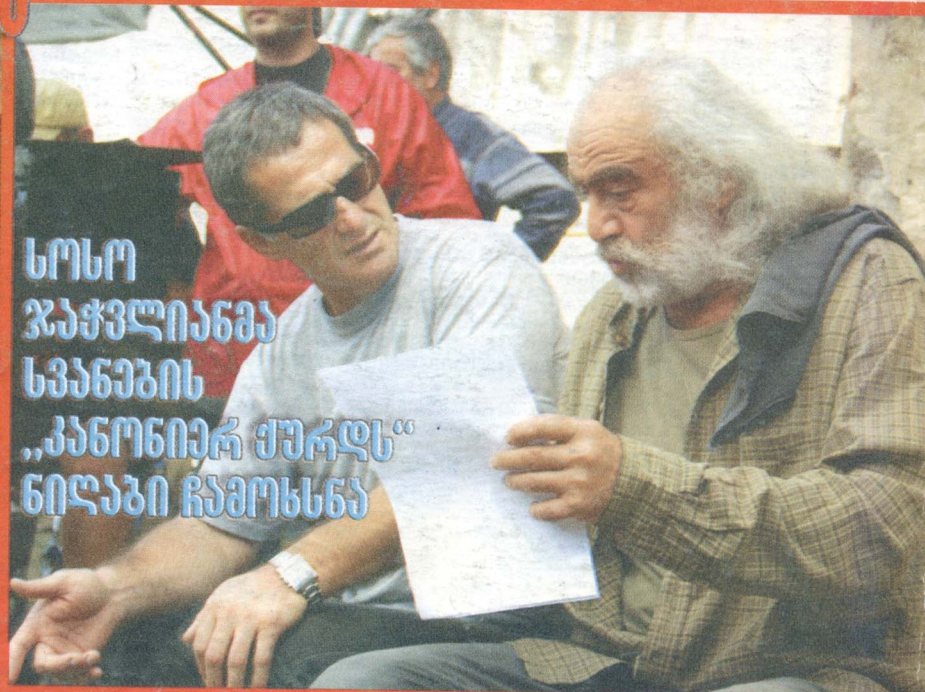 სოსო
ჯაჭვლიანმა
სვანების
„კანონიერ ქურდს“
ნიღაბი ჩამოხსნა